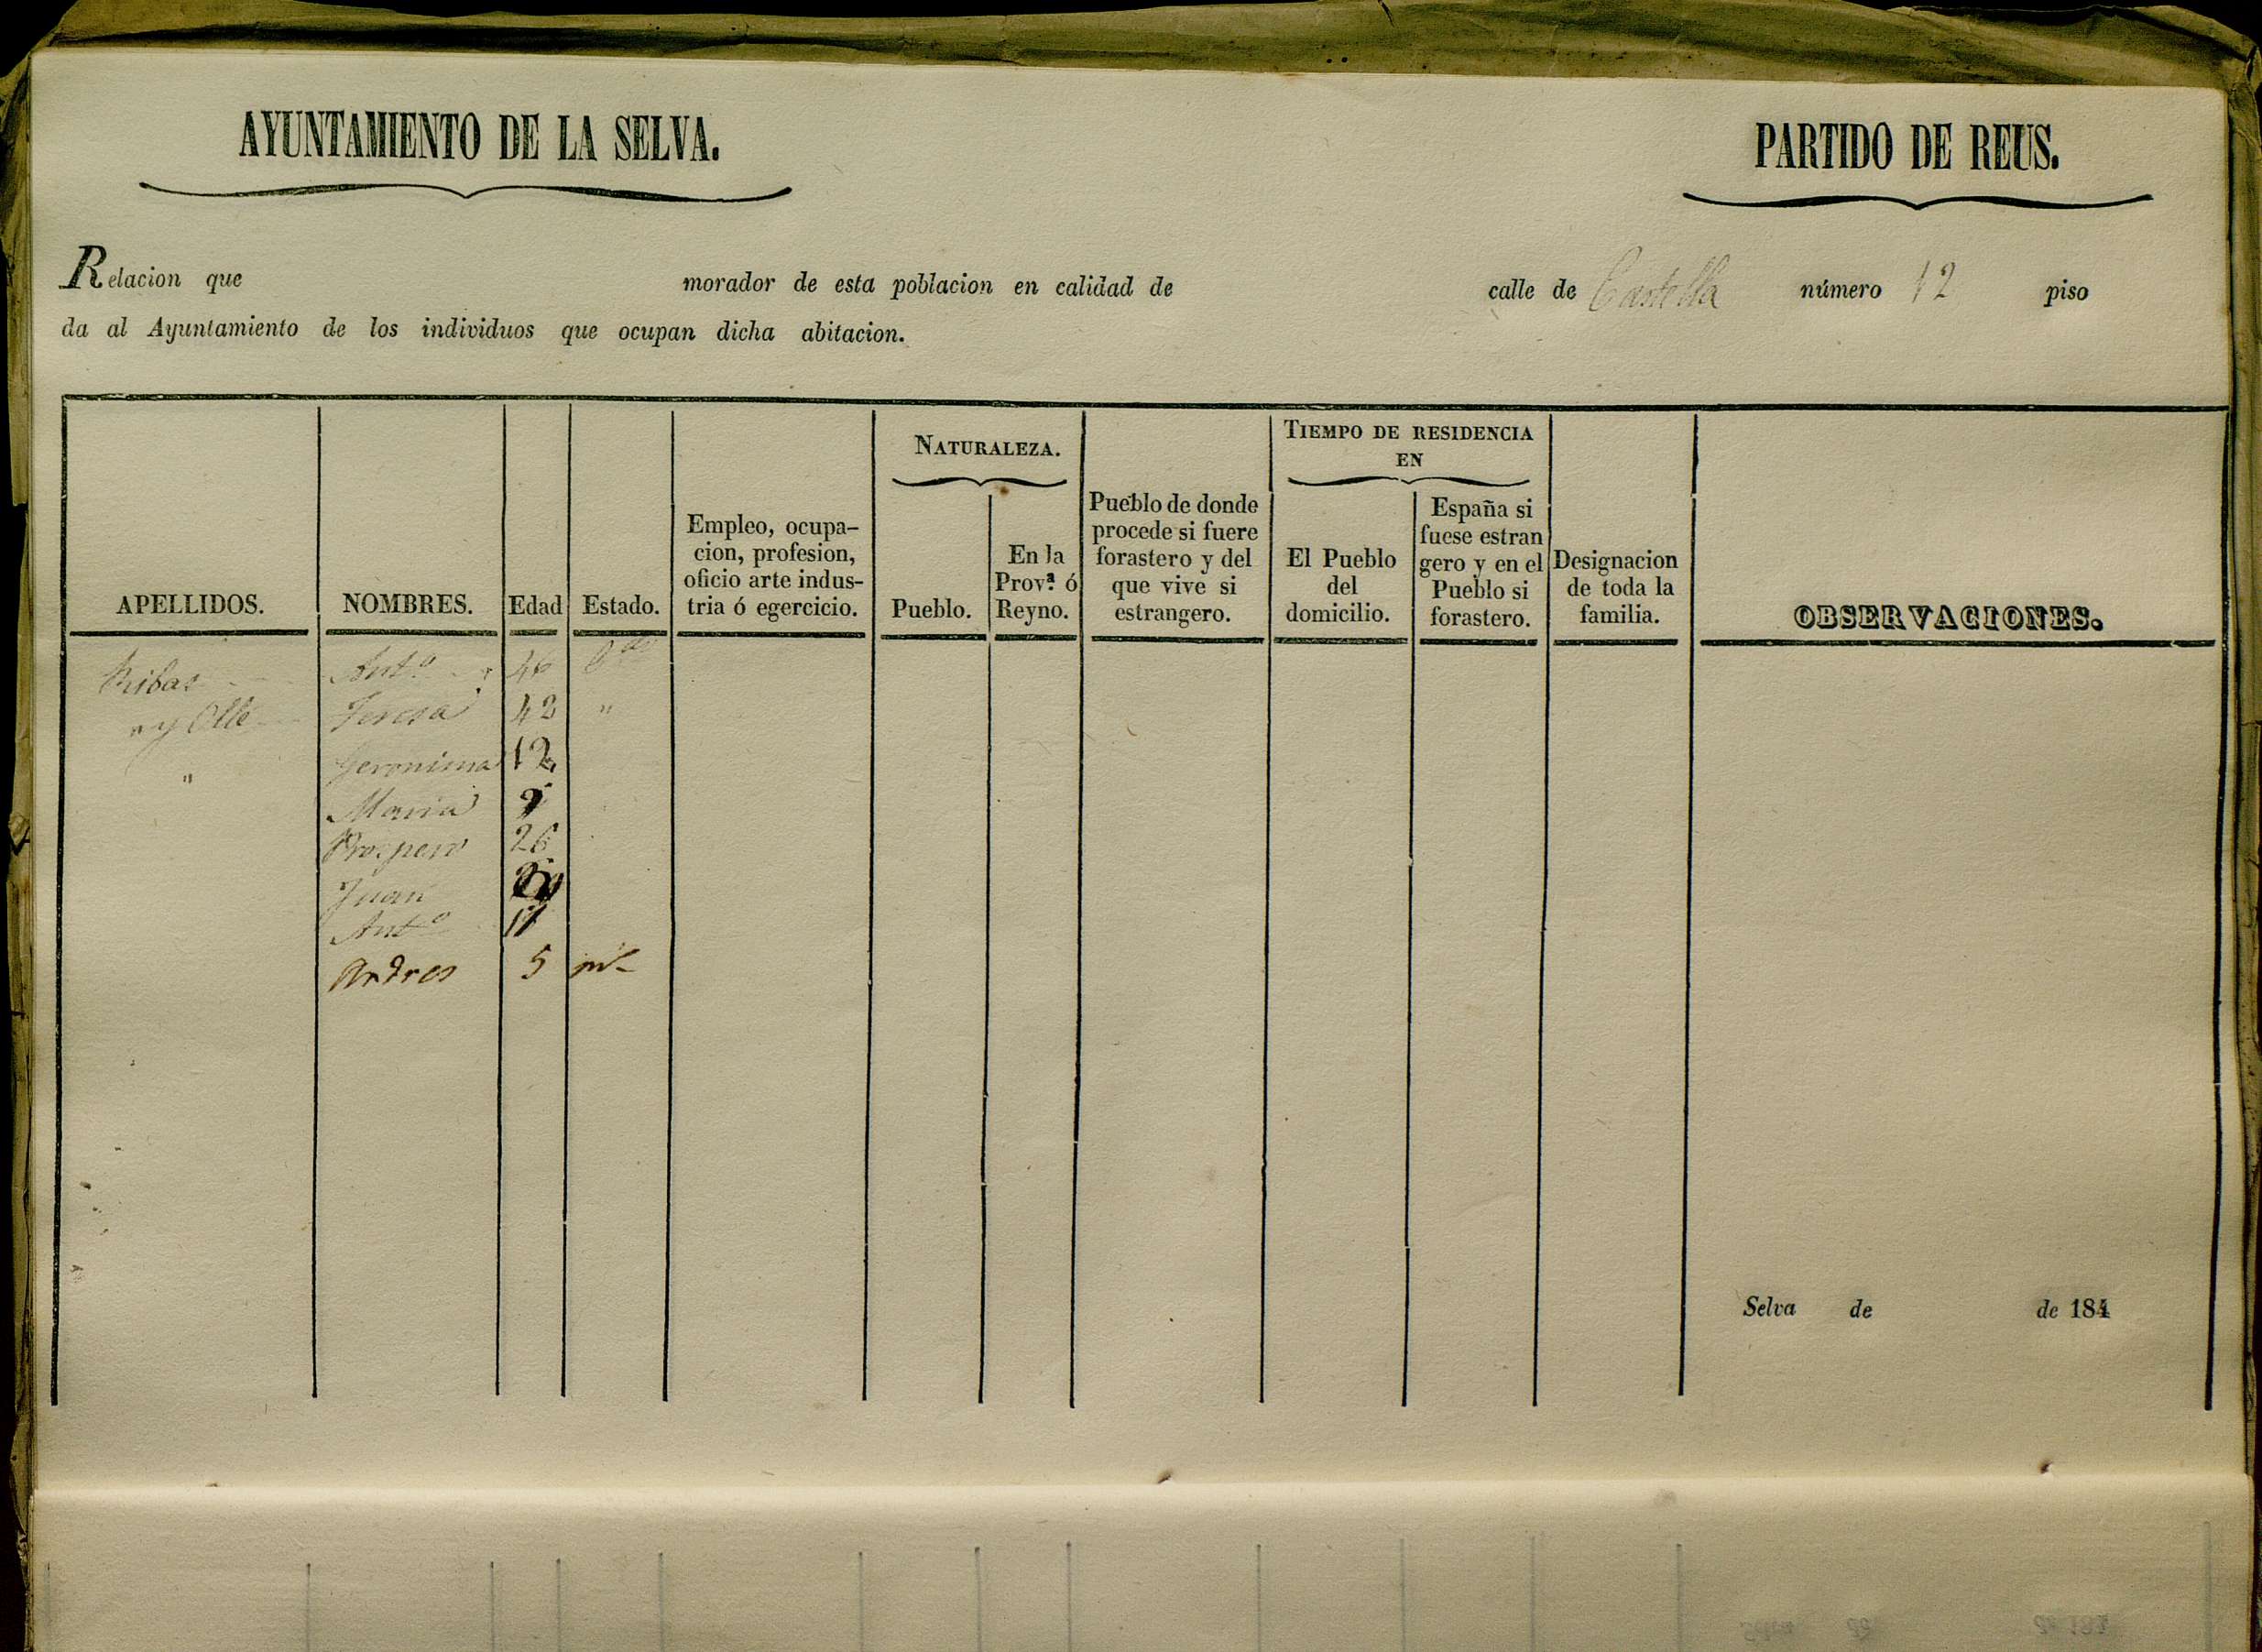 AYUNTAMIENTO DE LA SELVA.
PARTIDO DE REUS.
Relacion que morador de esta poblacion en calidad de calle de Castella número 12 piso
da al Ayuntamiento de los individuos que ocupan dicha abitacion.
APELLIDOS.
NOMBRES.
Edad
Estado.
Empleo, ocupa-
cion, profesion,
oficio arte indus-
tria ó egercicio.
NATURALEZA.
Pueblo.
En la
Prov.ª ó
Reyno.
Pueblo de donde
procede si fuere
forastero y del
que vive si
estrangero.
TIEMPO DE RESIDENCIA
EN
El Pueblo
del
domicilio.
España si
fuese estran
gero y en el
Pueblo si
forastero.
Designacion
de toda la
familia.
OBSERVACIONES.
Ribas Ant.o 46
" y Olle Teresa 42 "
" Geronima 12
Maria 9
Prospero 26
Juan
Ant.o 17
Andres 5
Selva de de 184